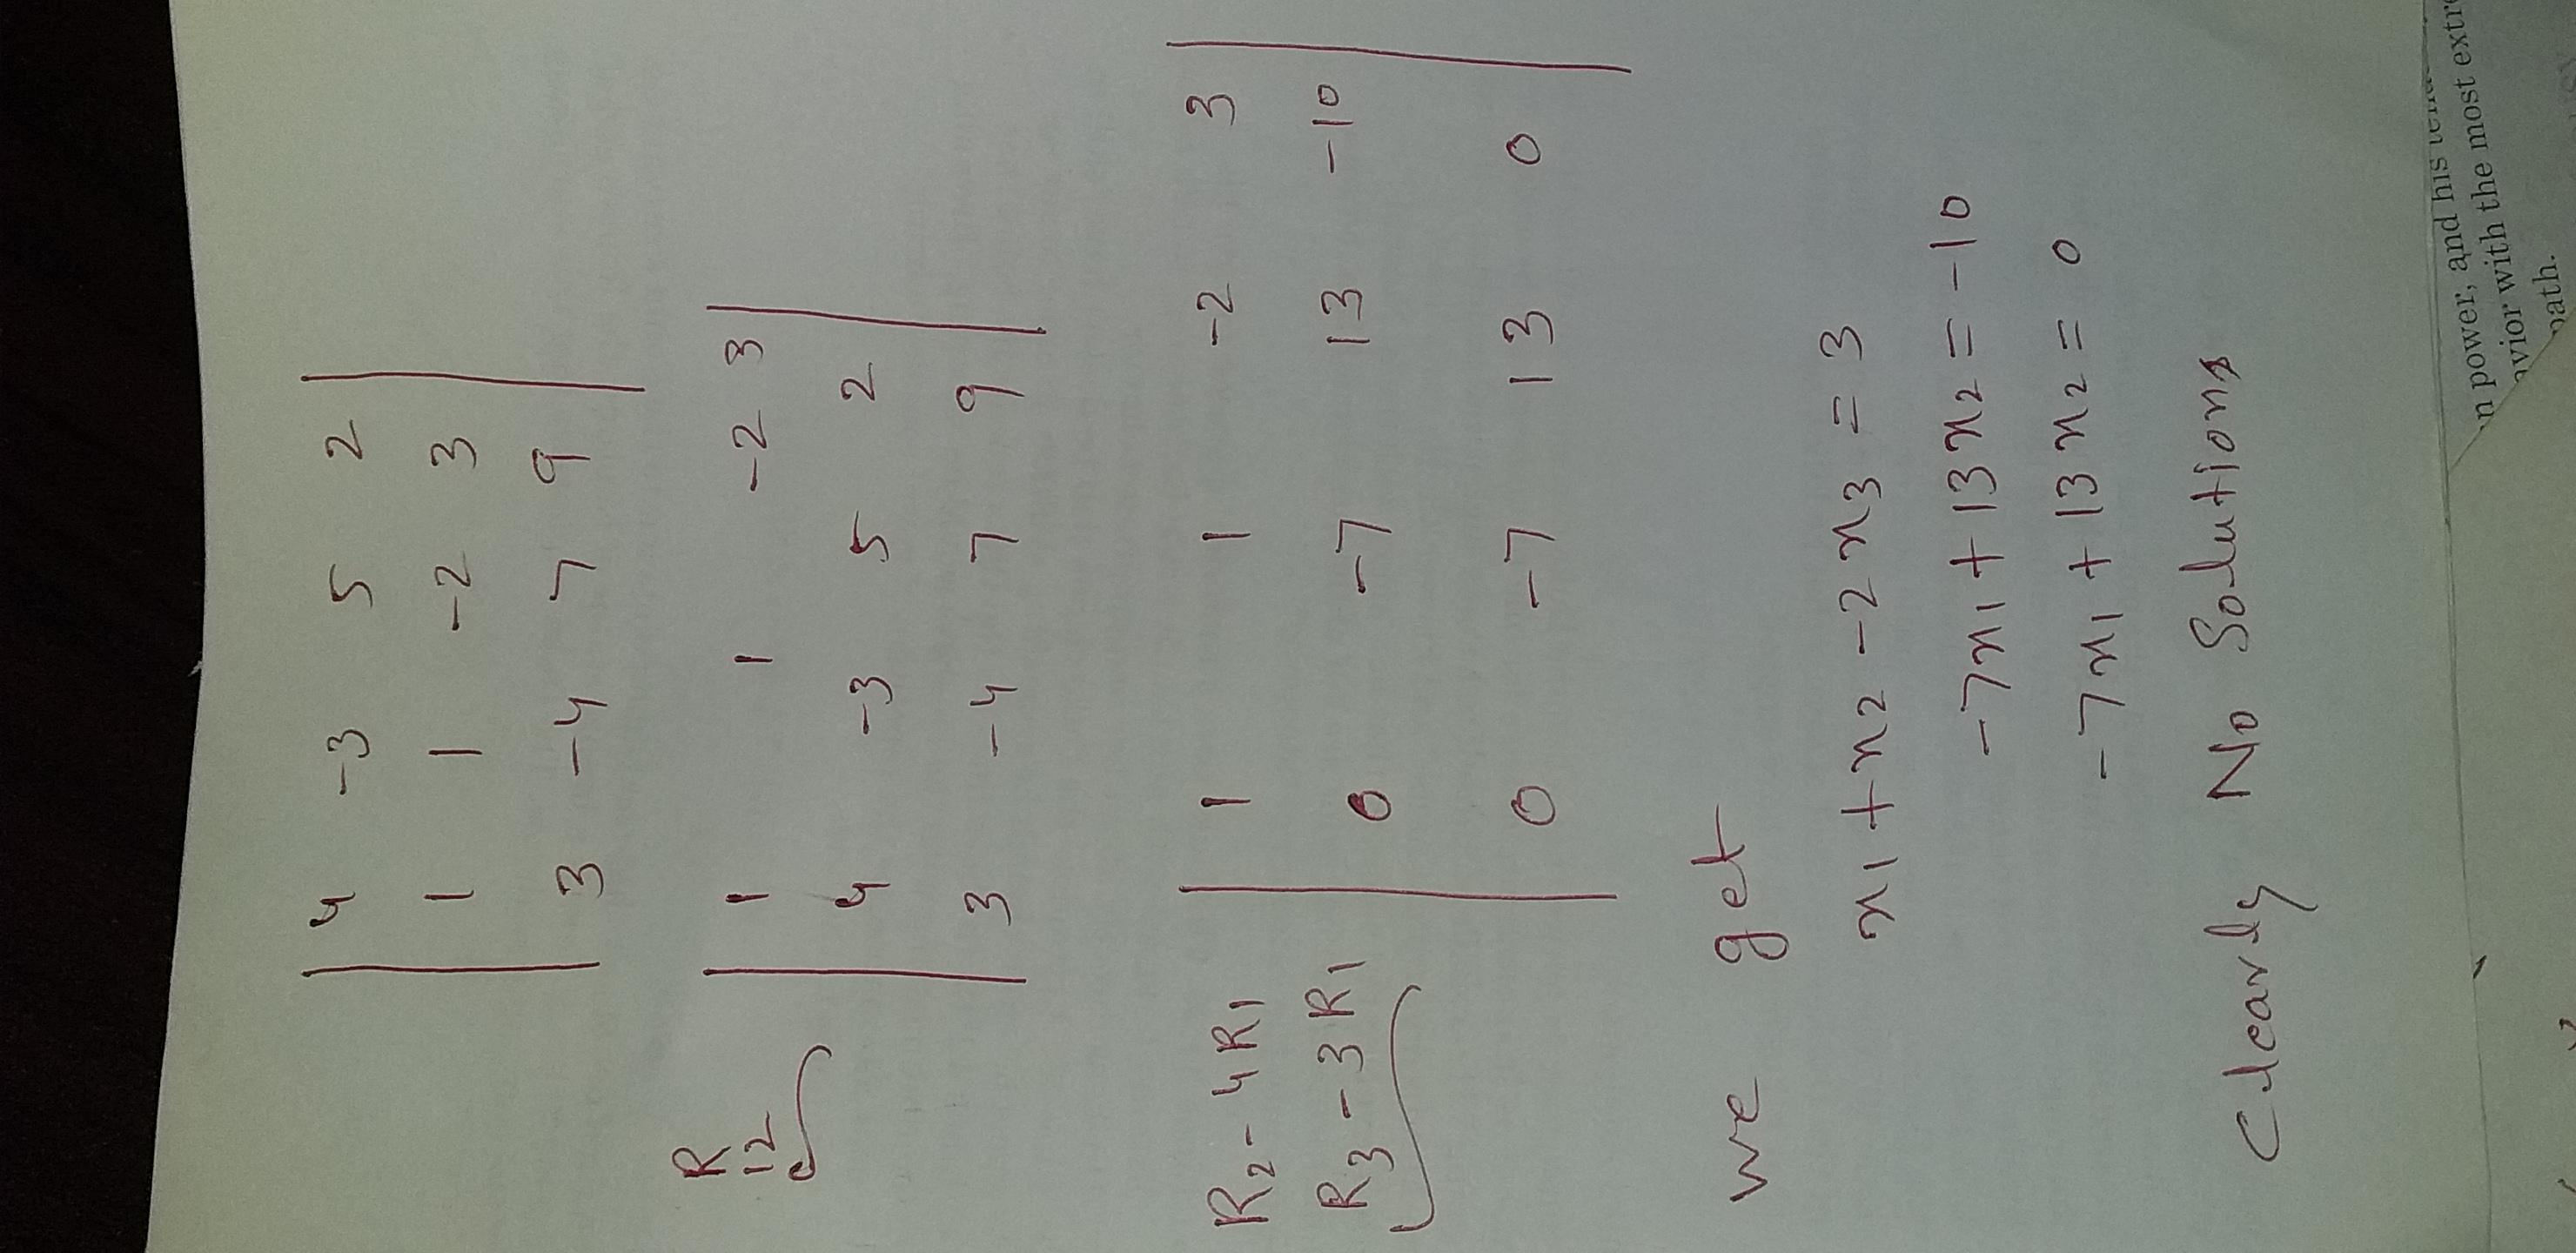 4 -3 5 2
1 1 -2 3
3 -4 7 9
R12
1 1 -2 3
4 -3 5 2
3 -4 7 9
R2 - 4R1
R3 - 3R1
1 1 -2 3
0 -7 13 -10
0 -7 13 0
we get
x1 + x2 - 2x3 = 3
-7x1 + 13x2 = -10
-7x1 + 13x2 = 0
Clearly No Solutions
n power, and his
avior with the most extr
path.